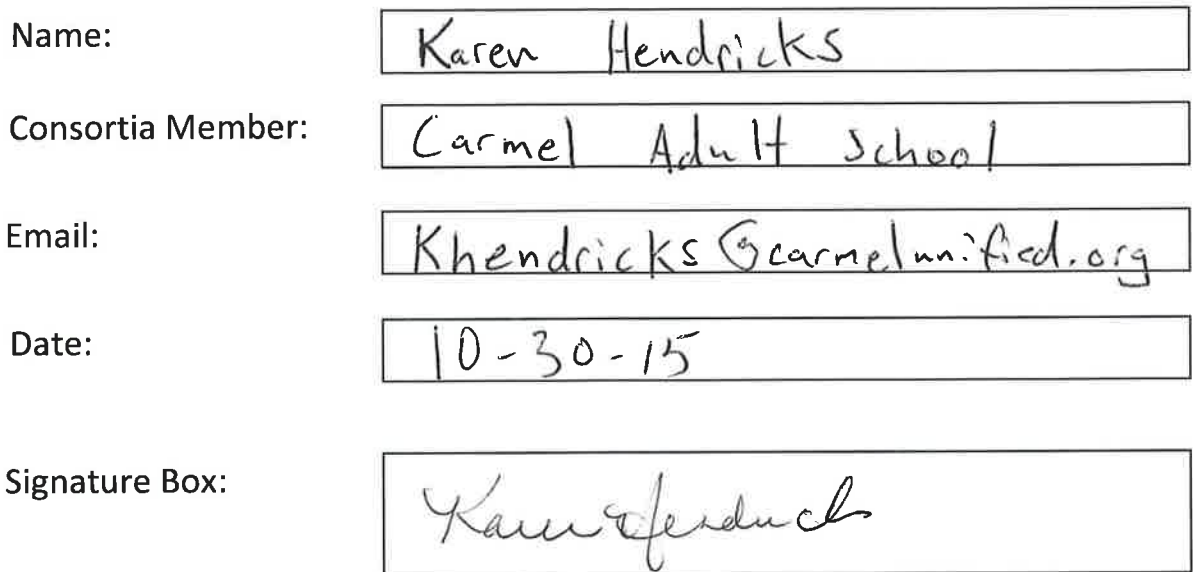 Name: Karen Hendricks
Consortia Member: Carmel Adult School
Email: Khendricks@carmelunified.org
Date: 10-30-15
Signature Box: Karen Hendricks